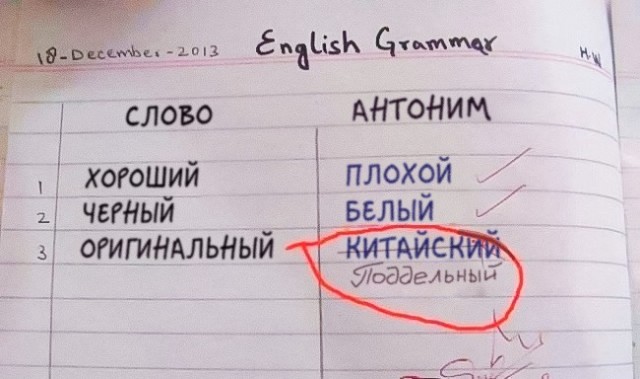 18-December-2013 English Grammar H.W
СЛОВО АНТОНИМ
1 ХОРОШИЙ ПЛОХОЙ
2 ЧЕРНЫЙ БЕЛЫЙ
3 ОРИГИНАЛЬНЫЙ КИТАЙСКИЙ
Поддельный